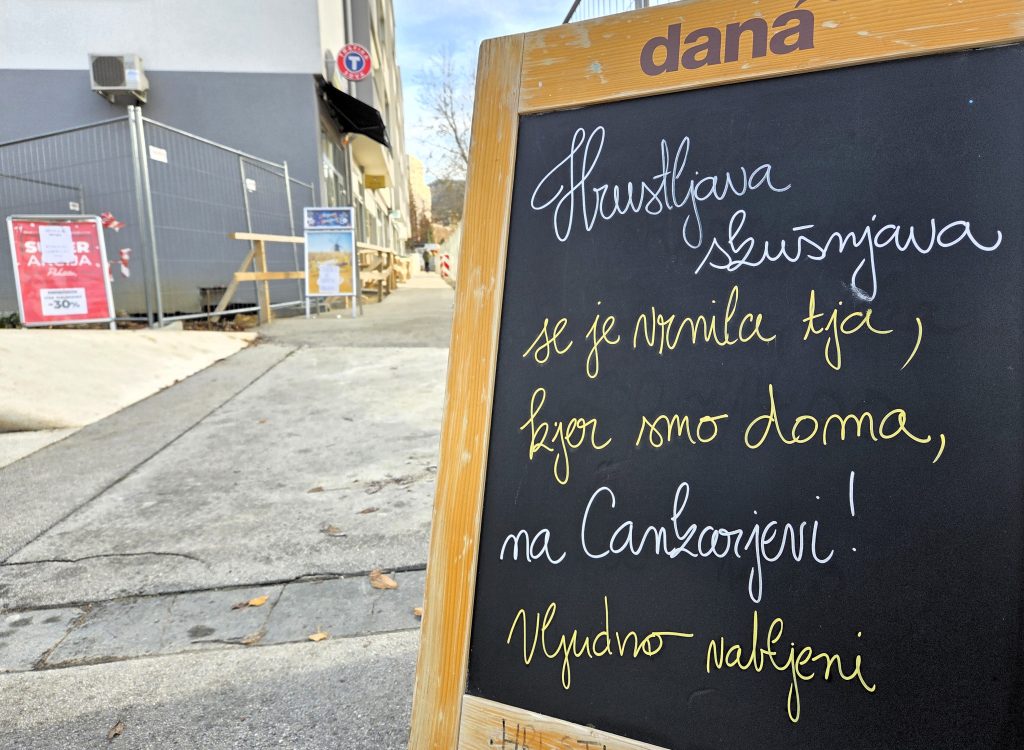 daná
Hrustljava
skušnjava
se je vrnila tja,
kjer smo doma,
na Cankarjevi!
Vljudno vabljeni
T
-30%